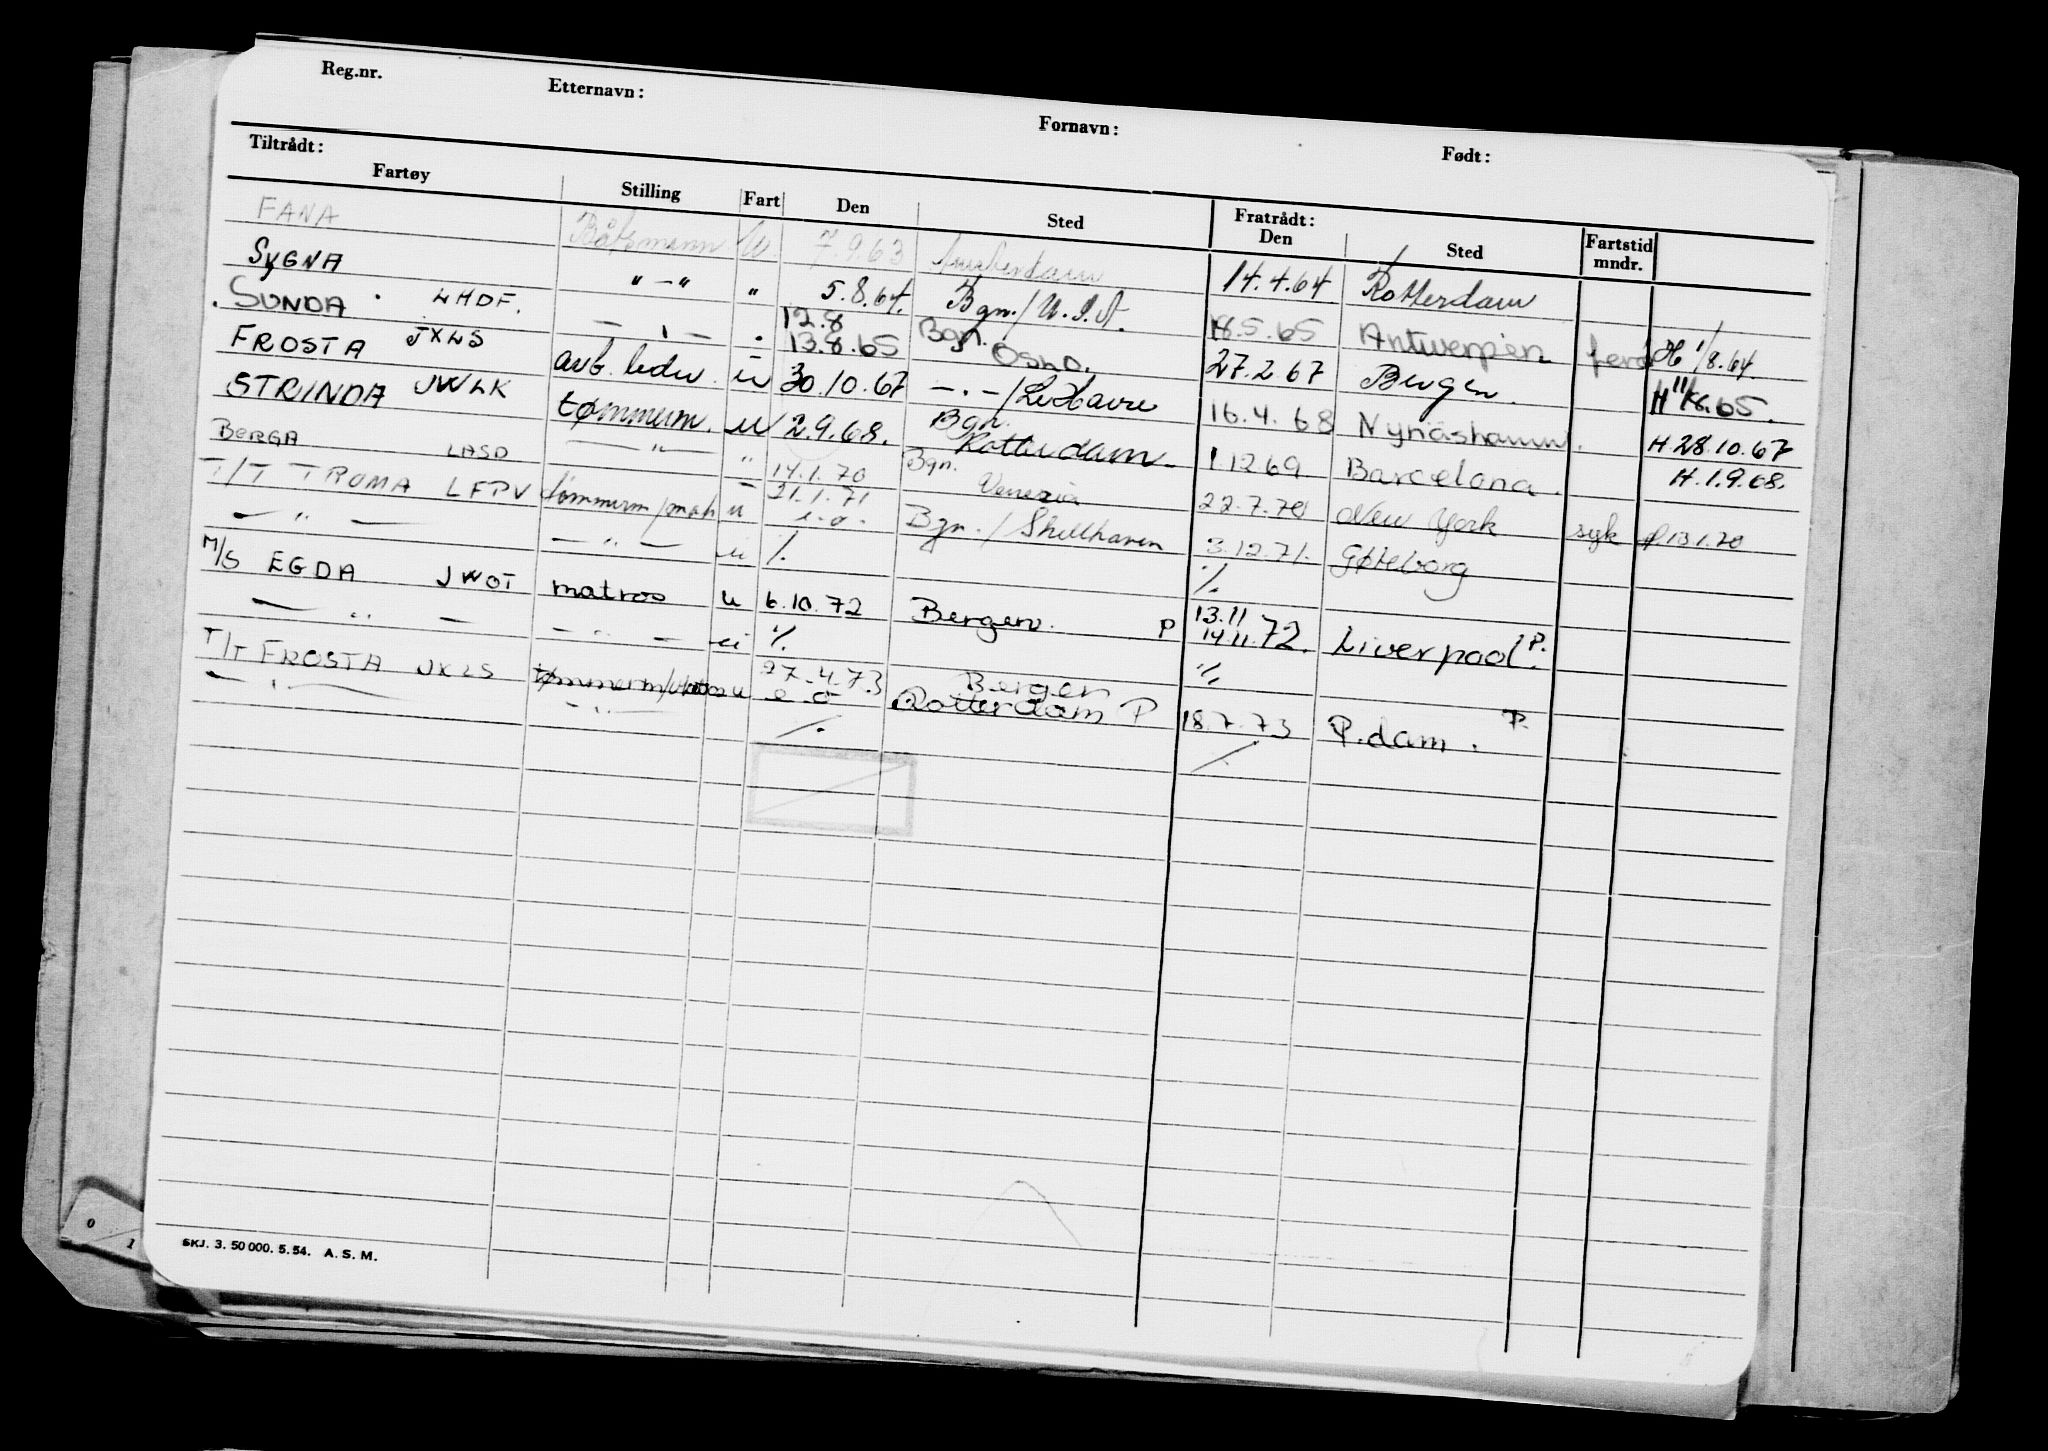 Reg.nr. Etternavn: Fornavn: Født:
Tiltrådt: Fratrådt:
Fartøy Stilling Fart Den Sted Den Sted Fartstid mndr.
FANA Båtsmann U. 7.9.63 Amsterdam 14.4.64 Rotterdam
SYGNA " - " " 5.8.64. Bgn./U.S.A. 18.5.65 Antwerpen H 1/8.64.
SUNDA LHDF. 12.8 13.8.65 Bgn. Oslo. 27.2.67 Bergen. H 11/8.65.
FROSTA JXLS u 30.10.67 - . - /Le Havre 16.4.68 Nynäshamn. H 28.10.67
STRINDA JWLK tømmerm. u 2.9.68. Bgn. Rotterdam. 1.12.69 Barcelona. H.1.9.68.
BERGA LASD — " — " 14.1.70 Bgn. Venezia 22.7.70 New York syk 13.1.70
T/T TROMA LFPV tømmerm/matr u 21.1.71 Bgn. / Skillhaven 3.12.71. Gøteborg
— " — — " — u %. %.
M/S EGDA JWOT matros u 6.10.72 Bergen. P 13.11 14.11.72. Liverpool P.
— " — — " — u %. %
T/T FROSTA JXLS u 27.4.73 Bergen Rotterdam P 18.7.73 R.dam. P.
— " — — " — %. %
SKJ. 3. 50 000. 5. 54. A. S. M.